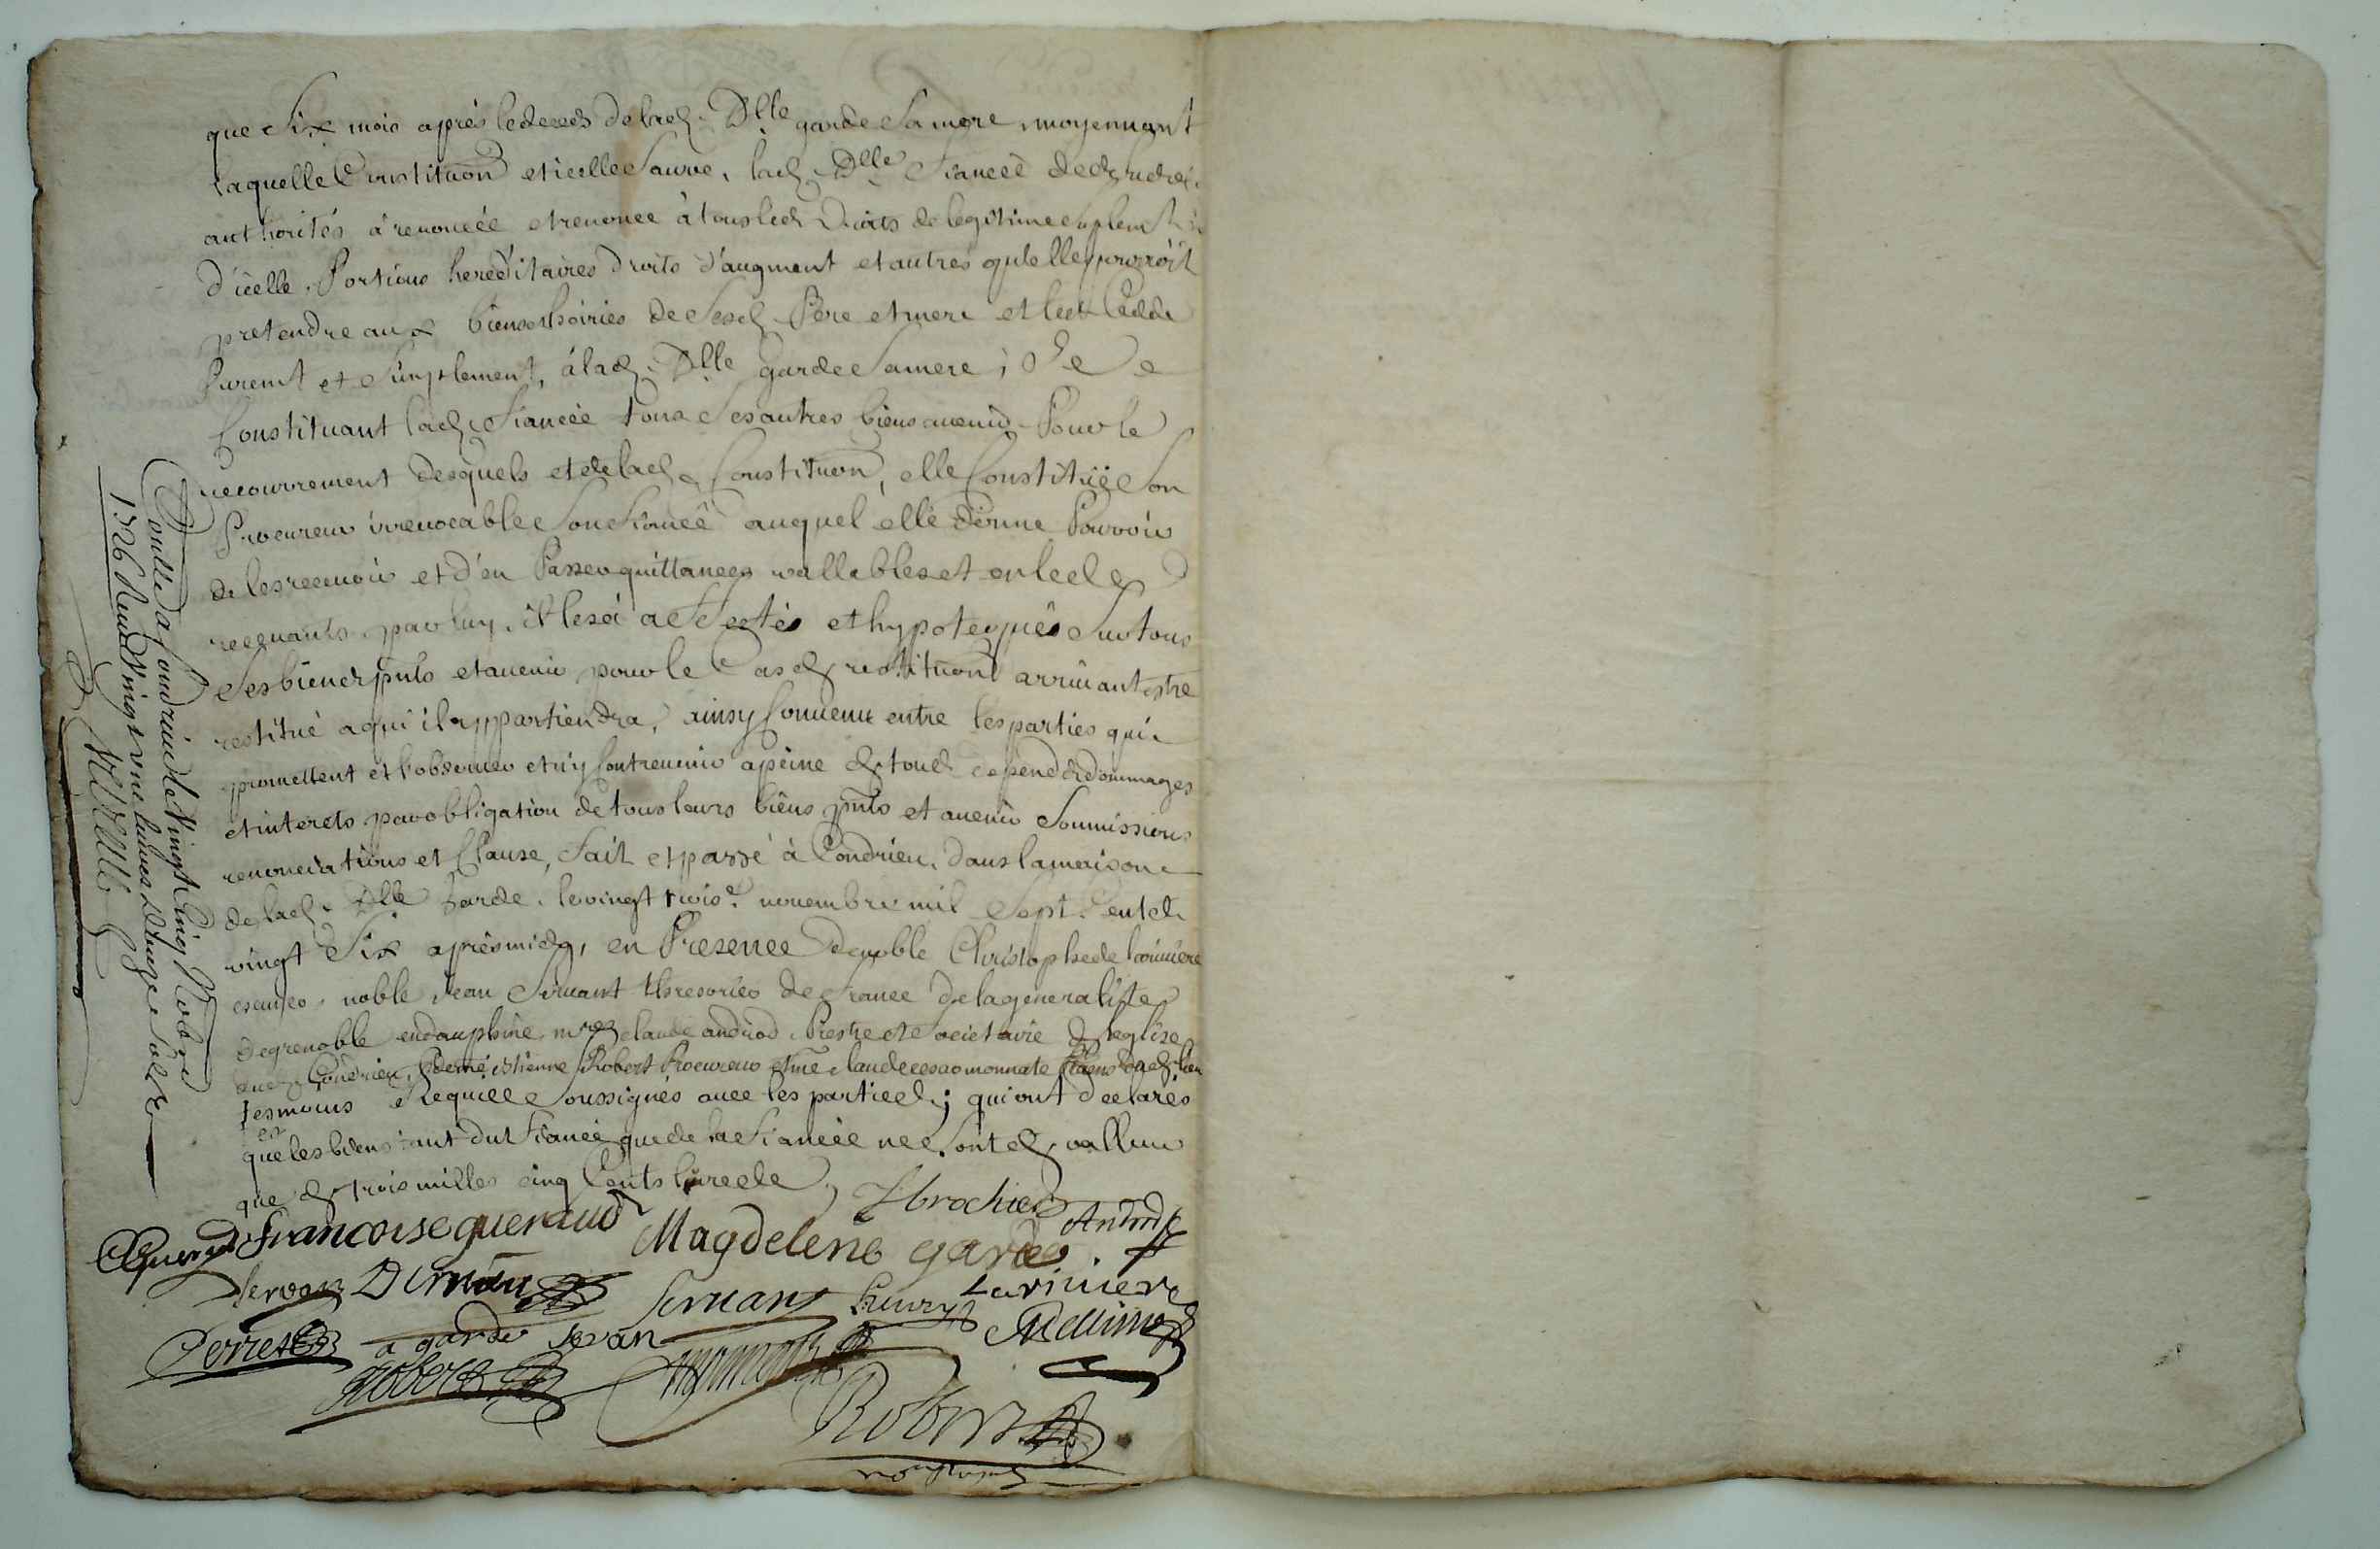 que Six mois après le deceds de lad. Dlle garde Sa mere, moyennant
laquelle Constituon et icelle Sauve, lad. Dlle fiancée
authorités à renoncée et renonce à tous lesd. droits de legitime suplemt
d'icelle, Portions hereditaires droits d'augment et autres qu'elle pourroit
pretendre aux biens et hoiries de Sesd. Père et mere et les Cedde
Puremt et Simplement, à lad. Dlle garde Sa mere; Se
Constituant lad. fiancée tous Ses autres biens avenir Pour le
recouvrement desquels et de lad. Constituon, elle Constitüe Son
Procureur irrevocable Son fiancé auquel elle donne Pouvoir
de les recevoir et d'en Passer quittances vallables et en les
recevants par luy, il les à affectés et hypotequés Sur tous
Ses biens pnts et avenir pour le Cas de restituon arrivant estre
restitué a qui il appartiendra, ainsy Convenu entre les parties qui
promettent et l'observer et n'y Contrevenir a peine de tous depend dommages
et interets par obligation de tous leurs biens pnts et avenir Soumissions
renonciations et Clause, fait et passé à Condrieu, dans la maison
de lad. Dlle garde, le vingt trois.e novembre mil Sept Cent
vingt Six après midy, en Presence de noble Christophe de
noble Jean Servant thresorier de france de la generalité
de grenoble en dauphiné, claude androd Prestre et Societaire de l'eglise
Condrieu, Estienne Robert Procureur et me claude
tesmoins et requis Soussignés avec les parties; qui ont declarés
que les biens tant du fiancé que de la fiancée ne Sont de valleur
que de trois milles cinq Cents livres
Brochier
Françoise gueraud Magdelene garde Androd
Servan
Servant henry Laviniere
Perret a garde Servan
Robert
Robert
Conllé a Condrieu le Vingt Cinq Nobre
1726 Reçu Vingt une livres